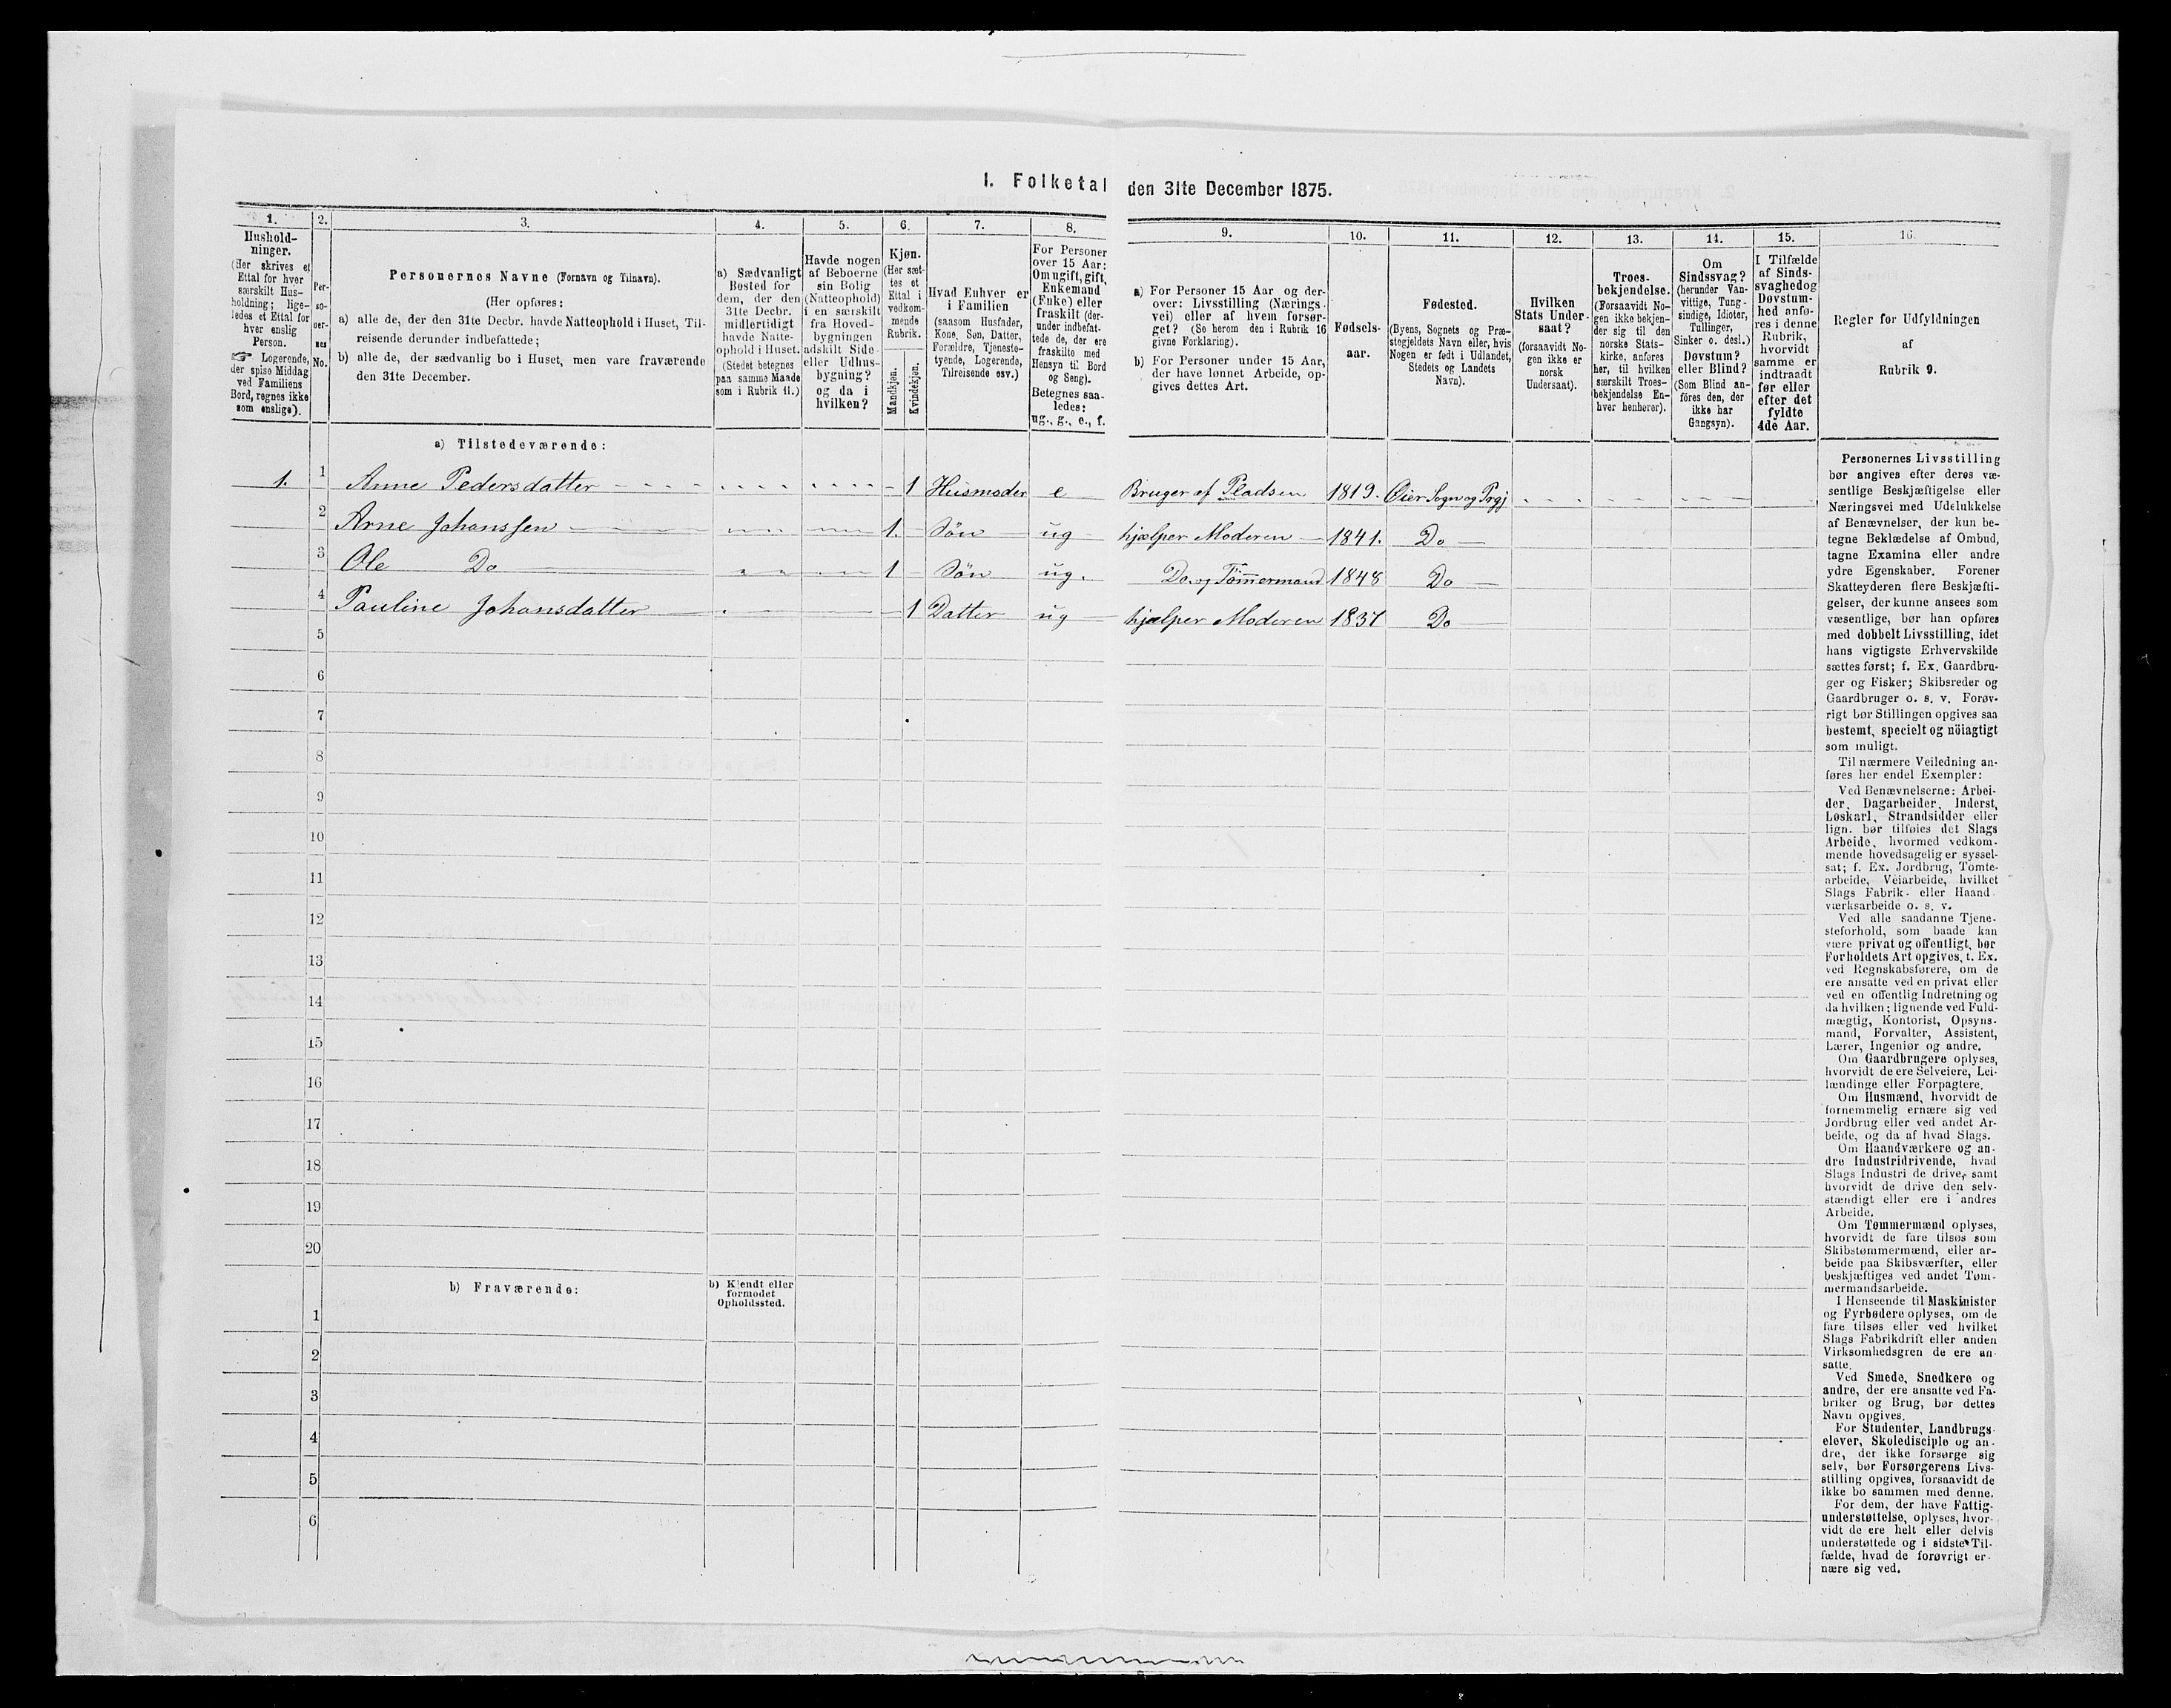 I. Folketal den 31te December 1875.
1. 2. 3. 4. 5. 6. 7. 8. 9. 10. 11. 12. 13. 14. 15. 16.
Hushold-
ninger.
(Her skrives et
Ettal for hver
særskilt Hus-
holdning; lige-
ledes et Ettal for
hver enslig
Person.
☞ Logerende,
der spise Middag
ved Familiens
Bord, regnes ikke
som enslige).
Per-
so-
ner-
nes
No.
Personernes Navne (Fornavn og Tilnavn).
(Her opføres:
a) alle de, der den 31te Decbr. havde Natteophold i Huset, Til-
reisende derunder indbefattede;
b) alle de, der sædvanlig bo i Huset, men vare fraværende
den 31te December.
a) Sædvanligt
Bosted for
dem, der den
31te Decbr.
midlertidigt
havde Natte-
ophold i Huset.
(Stedet betegnes
paa samme Maade
som i Rubrik 11.)
Havde nogen
af Beboerne
sin Bolig
(Natteophold)
i en særskilt
fra Hoved-
bygningen
adskilt Side-
eller Udhus-
bygning?
og da i
hvilken?
Kjøn.
(Her sæt-
tes et
Ettal i
vedkom-
mende
Rubrik.
Mandkjøn.
Kvindekjøn.
Hvad Enhver er
i Familien
(saasom Husfader,
Kone, Søn, Datter,
Forældre, Tjeneste-
tyende, Logerende,
Tilreisende osv.)
For Personer
over 15 Aar:
Om ugift, gift,
Enkemand
(Enke) eller
fraskilt (der-
under indbefat-
tede de, der ere
fraskilte med
Hensyn til Bord
og Seng).
Betegnes saa-
ledes:
ug., g., e., f.
a) For Personer 15 Aar og der-
over: Livsstilling (Nærings-
vei) eller af hvem forsør-
get? (Se herom den i Rubrik 16
givne Forklaring).
b) For Personer under 15 Aar,
der have lønnet Arbeide, op-
gives dettes Art.
Fødsels-
aar.
Fødested.
(Byens, Sognets og Præ-
stegjeldets Navn eller, hvis
Nogen er født i Udlandet,
Stedets og Landets
Navn).
Hvilken
Stats Under-
saat?
(forsaavidt No-
gen ikke er
norsk
Undersaat).
Troes-
bekjendelse.
(Forsaavidt No-
gen ikke bekjen-
der sig til den
norske Stats-
kirke, anføres
her, til hvilken
særskilt Troes-
bekjendelse En-
hver henhører).
Om
Sindssvag?
(herunder Van-
vittige, Tung-
sindige, Idioter,
Tullinger,
Sinker o. desl.)
Døvstum?
eller Blind?
(Som Blind an-
føres den, der
ikke har
Gangsyn).
I Tilfælde
af Sinds-
svaghed og
Døvstum-
hed anfø-
res i denne
Rubrik,
hvorvidt
samme er
indtraadt
før eller
efter det
fyldte
4de Aar.
Regler for Udfyldningen
af
Rubrik 9.
a) Tilstedeværende:
1. 1 Anne Pedersdatter 1 Husmoder e Bruger af Pladsen 1819. Øier Sogn og Prgj
2 Arne Johanssen 1. Søn ug hjælper Moderen 1841. Do
3 Ole Do 1 Søn ug. Do. og Tömmermand 1848 Do
4 Pauline Johansdatter 1 Datter ug hjælper Moderen 1837 Do
5
6
7
8
9
10
11
12
13
14
15
16
17
18
19
20
b) Fraværende:
b) Kjendt eller
formodet
Opholdssted.
1
2
3
4
5
6
Personernes Livsstilling
bør angives efter deres væ-
sentlige Beskjæftigelse eller
Næringsvei med Udelukkelse
af Benævnelser, der kun be-
tegne Beklædelse af Ombud,
tagne Examina eller andre
ydre Egenskaber. Forener
Skatteyderen flere Beskjæfti-
gelser, der kunne ansees som
væsentlige, bør han opføres
med dobbelt Livsstilling, idet
hans vigtigste Erhvervskilde
sættes først; f. Ex. Gaardbru-
ger og Fisker; Skibsreder og
Gaardbruger o. s. v. Forøv-
rigt bør Stillingen opgives saa
bestemt, specielt og nöiagtigt
som muligt.
Til nærmere Veiledning an-
føres her endel Exempler:
Ved Benævnelserne: Arbei-
der, Dagarbeider, Inderst,
Løskarl, Strandsidder eller
lign. bør tilføies det Slags
Arbeide, hvormed vedkom-
mende hovedsagelig er syssel-
sat; f. Ex. Jordbrug, Tomte-
arbeide, Veiarbeide, hvilket
Slags Fabrik- eller Haand-
værksarbeide o. s. v.
Ved alle saadanne Tjene-
steforhold, som baade kan
være privat og offentligt, bør
Forholdets Art opgives, t. Ex.
ved Regnskabsførere, om de
ere ansatte ved en privat eller
ved en offentlig Indretning og
da hvilken; lignende ved Fuld-
mægtig, Kontorist, Opsyns-
mand, Forvalter, Assistent,
Lærer, Ingeniør og andre.
Om Gaardbrugere oplyses,
hvorvidt de ere Selveiere, Lei-
lændinge eller Forpagtere.
Om Husmænd, hvorvidt de
fornemmelig ernære sig ved
Jordbrug eller ved andet Ar-
beide, og da af hvad Slags.
Om Haandværkere og an-
dre Industridrivende, hvad
Slags Industri de drive, samt
hvorvidt de drive den selv-
stændigt eller ere i andres
Arbeide.
Om Tømmermænd oplyses,
hvorvidt de fare tilsøs som
Skibstømmermænd, eller ar-
beide paa Skibsværfter, eller
beskjæftiges ved andet Tøm-
mermandsarbeide.
I Henseende til Maskinister
og Fyrbødere oplyses, om de
fare tilsøs eller ved hvilket
Slags Fabrikdrift eller anden
Virksomhedsgren de ere an-
satte.
Ved Smede, Snedkere og
andre, der ere ansatte ved Fa-
briker og Brug, bør dettes
Navn opgives.
For Studenter, Landbrugs-
elever, Skoledisciple og an-
dre, der ikke forsørge sig
selv, bør Forsørgerens Livs-
stilling opgives, forsaavidt de
ikke bo sammen med denne.
For dem, der have Fattig-
understøttelse, oplyses, hvor-
vidt de ere helt eller delvis
understøttede og i sidste Til-
fælde, hvad de forøvrigt er-
nære sig ved.